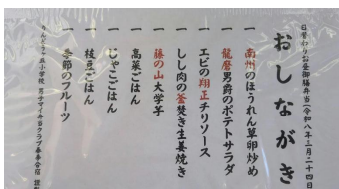 日替わりお昼御膳弁当(令和八年三月二十四日
おしながき
一 南州のほうれん草卵炒め
一 龍麿男爵のポテトサラダ
一 エビの翔正チリソース
一 しし肉の釜焚き生姜焼き
一 藤の山大学芋
一 高菜ごはん
一 じゃこごはん
一 枝豆ごはん
一 季節のフルーツ
小学校 男子マイ弁当クラブ春季合宿